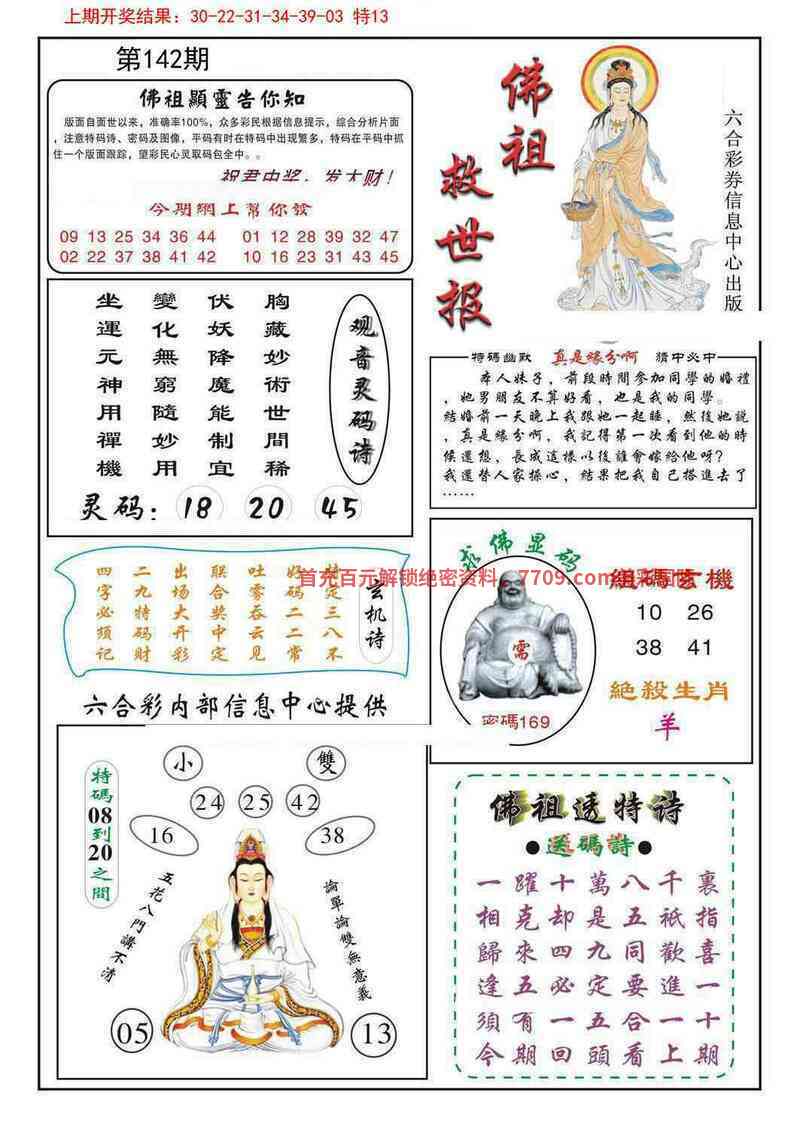 上期开奖结果：30-22-31-34-39-03 特13
第142期
佛祖顯靈告你知
版面自面世以来，准确率100%，众多彩民根据信息提示，综合分析片面
，注意特码诗、密码及图像，平码有时在特码中出现繁多，特码在平码中抓
住一个版面跟踪，望彩民心灵取码包全中。。
祝君中奖，发大财！
今期網上幫你發
09 13 25 34 36 44 01 12 28 39 32 47
02 22 37 38 41 42 10 16 23 31 43 45
佛祖
救世报
六合彩券信息中心出版
观音灵码诗
胸藏妙術世間稀
伏妖降魔能制宜
變化無窮隨妙用
坐運元神用禪機
灵码：18 20 45
特碼幽默 真是緣分啊 猜中必中
本人妹子，前段時間參加同學的婚禮
，她男朋友不算好看，也是我的同學。
結婚前一天晚上我跟她一起睡，然後她說
，真是緣分啊，我記得第一次看到他的時
候還想，長成這樣以後誰會嫁給他呀？
我還替人家操心，結果把我自己搭進去了
……
玄机诗
特定三八不
好码二二常
吐雾吞云见
联合奖中定
出场大开彩
二九特码财
四字必须记
首充百元解锁绝密资料 7709.com
求佛显码
需
密碼169
組碼玄機
10 26
38 41
絕殺生肖
羊
六合彩内部信息中心提供
小 雙
24 25 42
16 38
特碼08到20之間
五花八門講不清
論單論雙無意義
05 13
佛祖透特诗
●送碼詩●
一躍十萬八千裏
相克却是五祇指
歸來四九同歡喜
逢五必定要進一
須有一五合一十
今期回頭看上期